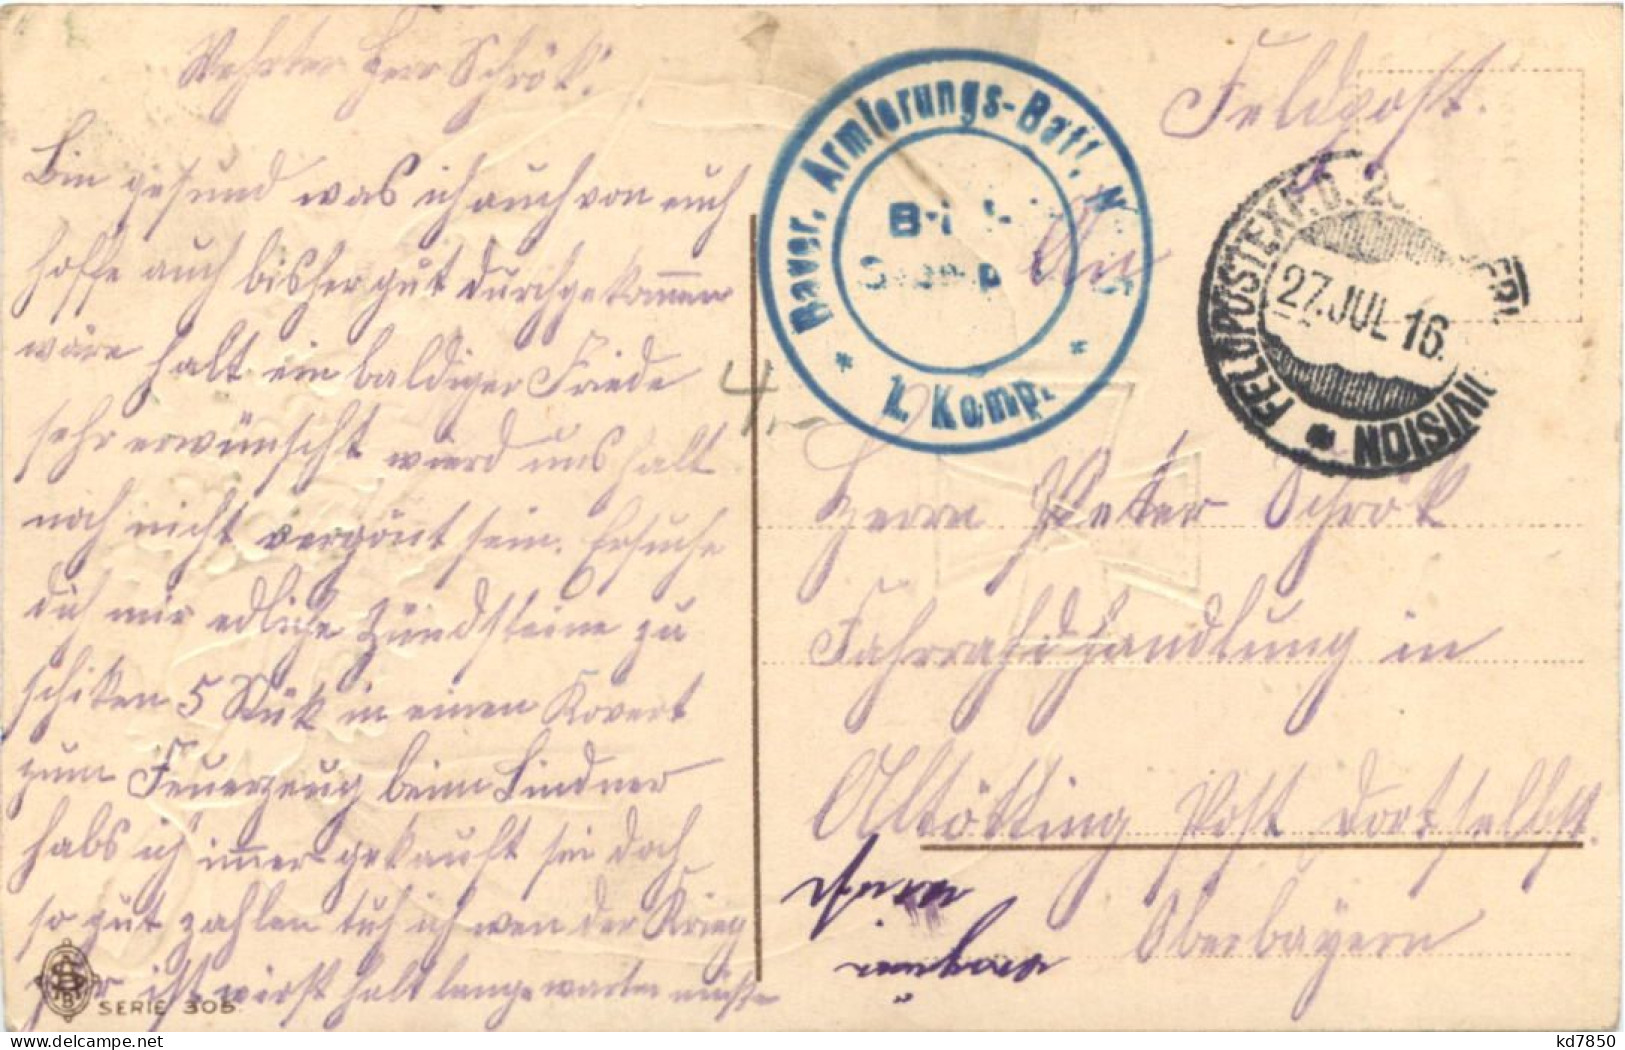 Wehrter Herr Schrök!
Bin gesund was ich auch von euch
hoffe auch bisher gut durchgekommen
wäre halt ein baldiger Friede
sehr erwünscht wierd uns halt
noch nicht vergönt sein. Ersuche
dich mir edliche Zündsteine zu
schiken 5 Stük in einen Kovert
zum Feuerzeug beim Lindner
habs ich immer gekauft sei doch
so gut zahlen tuh ich wen der Krieg
gar ist wirst halt lange warten müssen
SERIE 306.
Feldpost.
Bayer. Armierungs-Batl. N
Brief-
Stempel
1. Komp.
FELDPOSTEXP. D.
27. JUL 16.
DIVISION
An
Herrn Peter Schrök
Fahrradhandlung in
Altötting Post dortselbst.
Oberbayern
kd7850